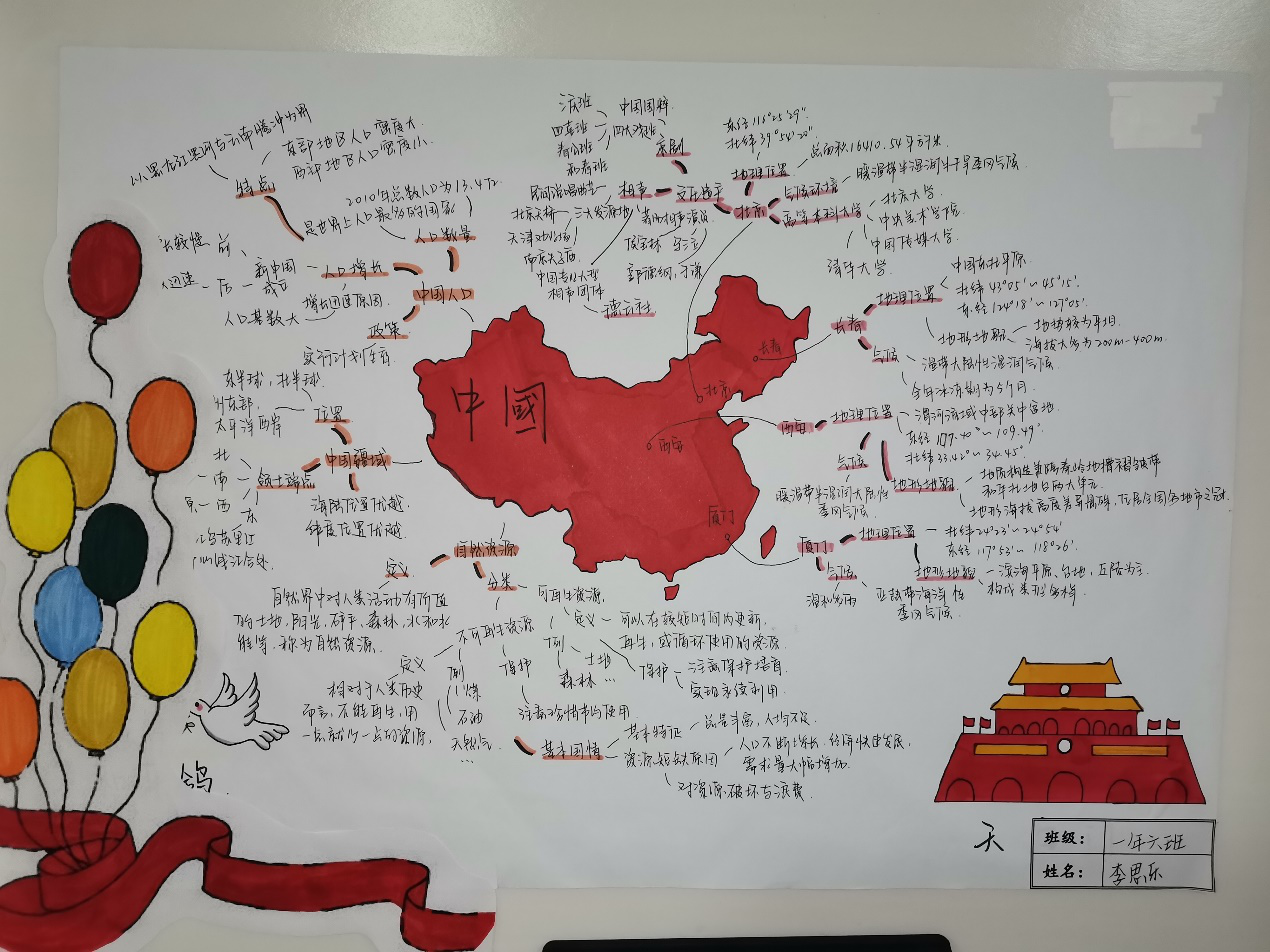 以黑龙江黑河与云南腾冲为界
东部地区人口密度大.
西部地区人口密度小.
特点
2010年总数人口为13.4亿
是世界上人口最多的国家
人口数量
长较慢
前
迅速
后
新中国
成立
人口增长
增长迅速原因.
人口基数大
中国人口
政策
实行计划生育
东半球，北半球.
东部.
太平洋西岸
位置
中国疆域
领土端点
北
南
西
东
乌苏里江
海陆位置优越.
纬度位置优越.
自然资源
定义
自然界中对人类活动有价值
的土地，阳光，矿产，森林，水和水
能等，称为自然资源.
分类
可再生资源.
定义
可以在较短时间内更新.
再生，或循环使用的资源.
例
土地
森林
...
保护
注意保护培育
实现永续利用.
不可再生资源
定义
相对于人类历史
而言，不能再生，用
一点就少一点的资源，
例
煤
石油
天然气.
...
保护
注意珍惜节约使用
基本国情
基本特征
总量丰富，人均不足.
资源短缺原因
人口不断增长，经济快速发展，
需求量大幅增加.
对资源破坏与浪费.
汉班
四喜班
春台班
和春班
中国国粹.
四大徽班
京剧
民间说唱曲艺
相声
北京天桥
三大发源地
天津劝业场
南京夫子庙
中国专业大型
相声团体
德云社
著名相声演员
侯宝林 马三立
郭德纲，于谦
文化填平
北京
地理位置
东经116°25′29″.
北纬39°54′20″.
总面积16410.54平方米
气候环境
暖温带半湿润半干旱季风气候
高等本科大学
北京大学
中央美术学院
中国传媒大学.
清华大学.
长春
地理位置
中国东北平原.
北纬43°05′～45°15′.
东经124°18′～127°05′.
地形地貌
地势较为平坦.
海拔大约为200m-400m.
气候
温带大陆性湿润气候
全年冰冻期为5个月.
西安
地理位置
渭河流域中部关中盆地
东经107.40°～109.49°.
北纬33.42°～34.45°.
气候
暖温带半湿润大陆性
季风气候
地形地貌
地质构造兼跨秦岭地槽褶皱带
和华北地台两大单元.
地形海拔高度差异悬殊，位居全国各地市之冠.
厦门
地理位置
北纬24°23′～24°54′
东经117°53′～118°26′.
气候
温和多雨
亚热带海洋性
季风气候.
地形地貌
滨海平原，台地，丘陵为主.
构成类型多样
中國
长春
北京
西安
厦门
鸽.
天
班级：
一年六班
姓名：
李思乐